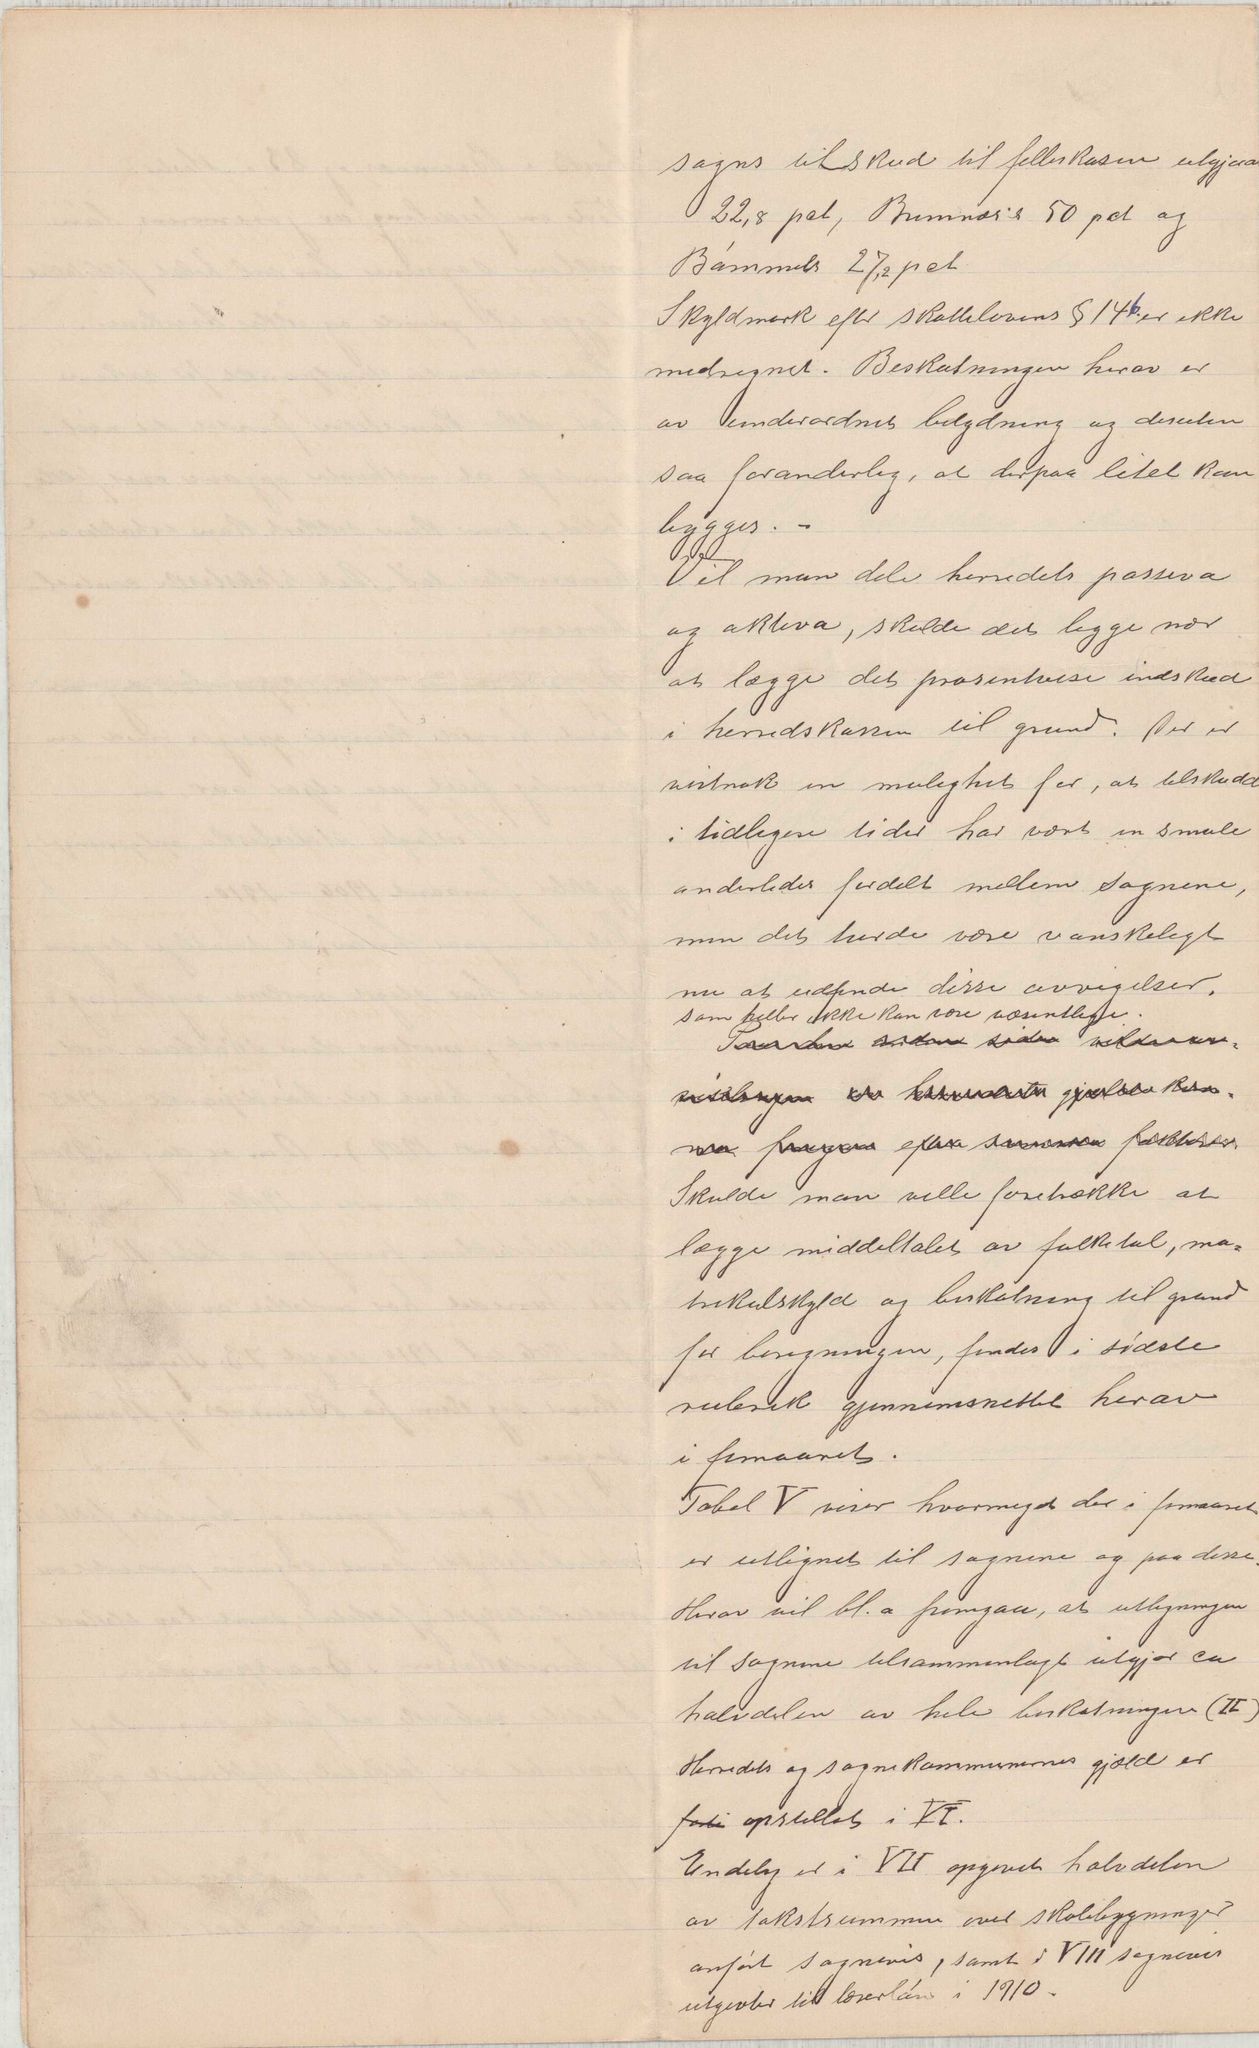 sogns tilskud til felleskassen utgjøra
22,8 pct, Bremnæs's 50 pct og
Bømmels 27,2 pct
Skyldmark efter skattelovens § 14 b. er ikke
medregnet. Beskatningen herav er
av underordnet betydning og desuten
saa foranderlig, at derpaa litet kan
bygges. -
Vil man dele herredets passiva
og aktiva, skulde det ligge nær
at lægge det prosentvise indskud
i herredskassen til grund. Der er
vistnok en mulighet for, at tilskudd
i tidligere tider har vært en smule
anderledes fordelt mellem sognene,
men det turde være vanskeligt
nu at udfinde disse avvigelser,
som heller ikke kan være væsentlige.
Skulde man ville foretrække at
lægge middeltalet av folketal, ma=
trikulskyld og beskatning til grund
for beregningen, findes i sidste
rubrik gjennemsnittet herav
i femaaret.
Tabel V viser hvormeget der i femaaret
er utlignet til sognene og paa disse.
Herav vil bl. a fremgaa, at utligningen
til sognene tilsammenlagt utgjør ca
halvdelen av hele beskatningen (II)
Herredets og sognekommunernes gjæld er
opstillet i VI.
Endelig er i VII opgivet halvdelen
av takstsummen over skolebygninger
anført sognevis, samt i VIII sognevis
utgivter til lærerløn i 1910.